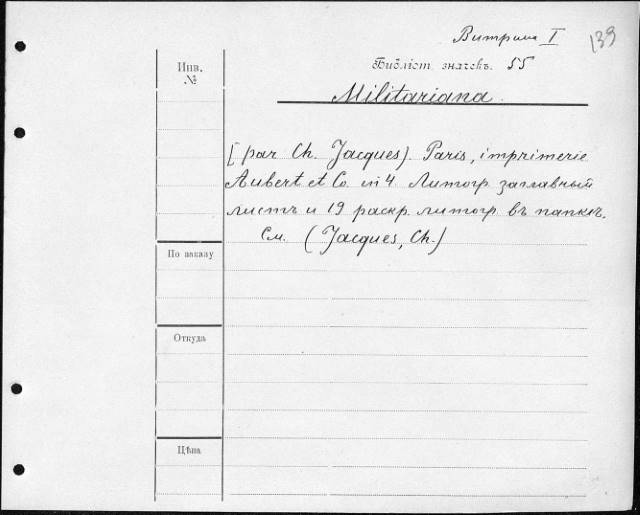 Витрина I
139
Инв. №
Библіот. значекъ. 55
Militariana.
[par Ch. Jacques). Paris, imprimerie
Aubert et Co. in 4. Литогр. заглавный
листъ и 19 раскр. литогр. въ папкѣ.
См. (Jacques, Ch.)
По заказу
Откуда
Цѣна